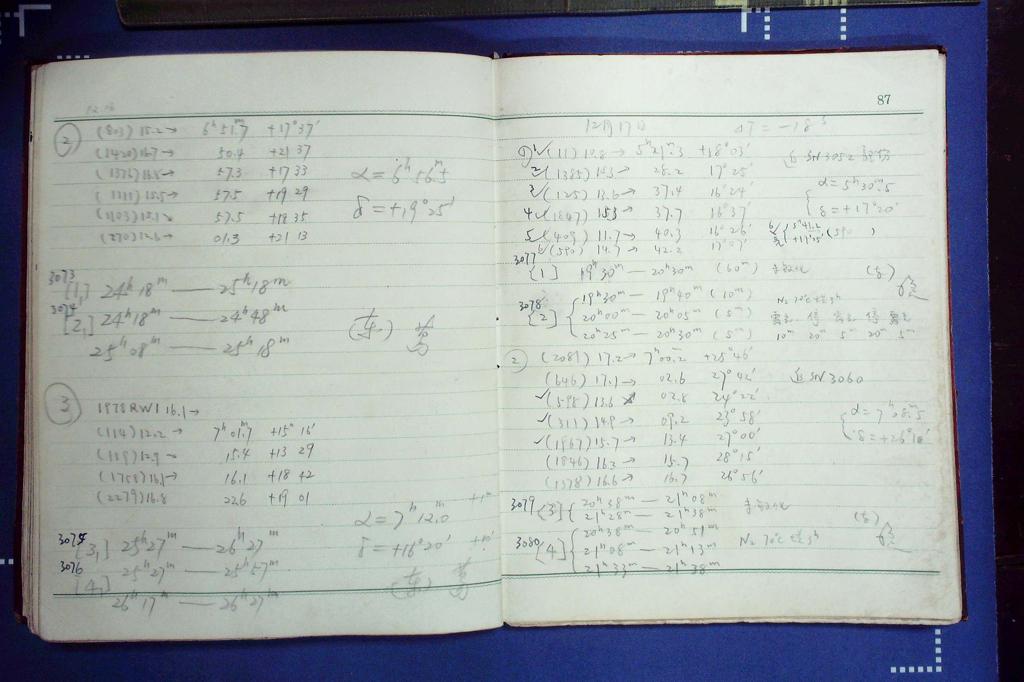 12.16
② (803) 15.2→ 6ʰ51.ᵐ7 +17°37′
(1420) 16.7→ 50.4 +21 37
(1376) 16.8→ 57.3 +17 33
(1111) 15.5→ 57.5 +19 29
(1103) 15.1→ 57.5 +18 35
(270) 12.6→ 01.3 +21 13
α=6ʰ56.ᵐ5
δ=+19°25′
3073 [1] 24ʰ18ᵐ — 25ʰ18ᵐ
3074 [2] 24ʰ18ᵐ — 24ʰ48ᵐ
25ʰ08ᵐ — 25ʰ18ᵐ
③ 1978RW1 16.1→
(114) 12.2→ 7ʰ01.ᵐ7 +15°16′
(119) 12.9→ 15.4 +13 29
(1758) 16.1→ 16.1 +18 42
(2279) 16.8 22.6 +19 01
α=7ʰ12.ᵐ0
δ=+16°20′
3075 [3] 25ʰ27ᵐ — 26ʰ27ᵐ
3076 [4] 25ʰ27ᵐ — 25ʰ57ᵐ
26ʰ17ᵐ — 26ʰ27ᵐ
87
12月17日 ΔT=-18ˢ
① 1✓(11) 10.8→ 5ʰ21.ᵐ3 +18°03′ 近SN3052
2✓(1385) 15.3→ 28.2 17°25′
3✓(125) 13.6→ 37.4 16°24′ α=5ʰ30.ᵐ5
4✓(1847) 15.3→ 37.7 16°37′ δ=+17°20′
5✓(409) 11.7→ 40.3 16°26′
6✓(590) 14.7→ 42.2 17°07′
3077 [1] 19ʰ30ᵐ — 20ʰ30ᵐ (60ᵐ)
3078 [2] 19ʰ30ᵐ — 19ʰ40ᵐ (10ᵐ)
20ʰ00ᵐ — 20ʰ05ᵐ (5ᵐ)
20ʰ25ᵐ — 20ʰ30ᵐ (5ᵐ) 10ᵐ 20ᵐ 5ᵐ 20ᵐ 5ᵐ
② (2081) 17.2→ 7ʰ00.ᵐ2 +25°46′
(646) 17.1→ 02.6 27°42′ 近SN3060
✓(598) 13.6 02.8 24°22′
✓(311) 14.9→ 09.2 23°58′ α=7ʰ08.ᵐ5
✓(1967) 15.7→ 13.4 27°00′ δ=+26°10′
(1846) 16.3→ 15.7 28°15′
(1378) 16.6→ 16.7 26°56′
3079 [3] 20ʰ38ᵐ — 21ʰ08ᵐ
21ʰ28ᵐ — 21ʰ38ᵐ
3080 [4] 20ʰ38ᵐ — 20ʰ51ᵐ
21ʰ08ᵐ — 21ʰ13ᵐ
21ʰ33ᵐ — 21ʰ38ᵐ